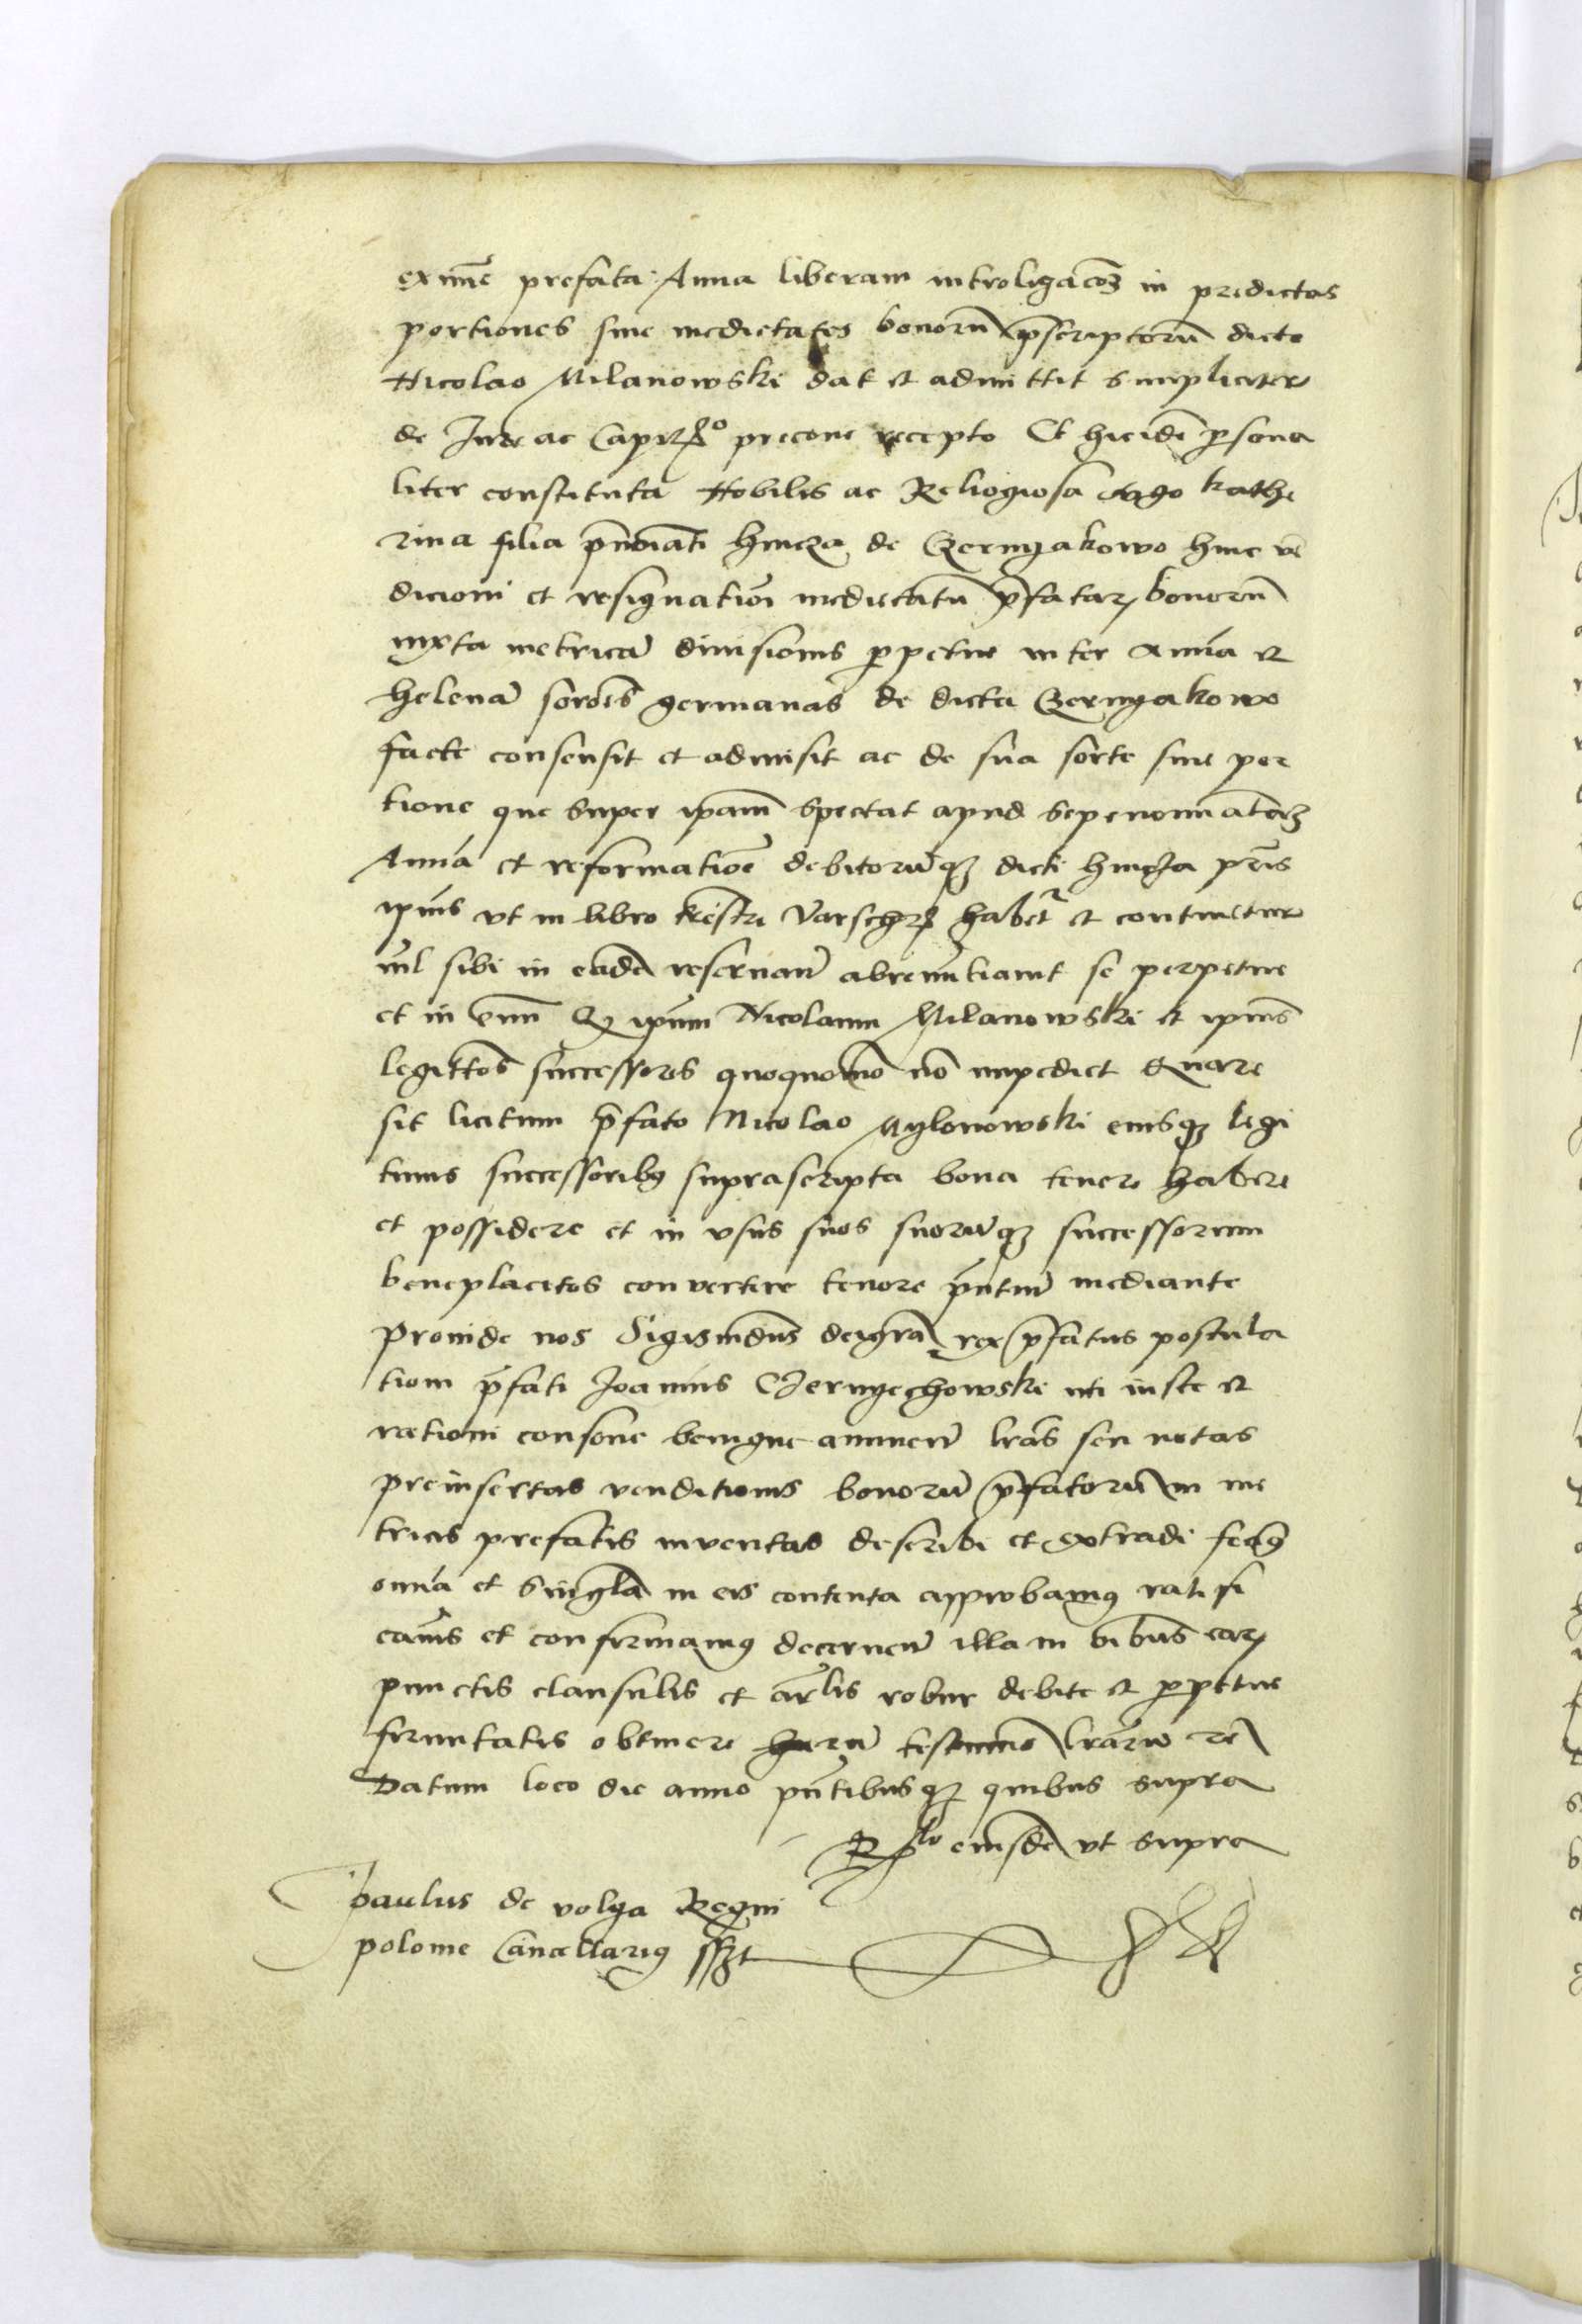 ex nunc prefata Anna liberam introligacōȝ in predictas
portiones siue medietates bonorū p̄scriptorū dicto
Nicolao Milanowski dat et admittit simpliciter
de Jure ac precone recepto Et hicidē ꝑsona
liter constituta Nobilis ac Religiosa virgo Kathe
rina filia hincza de Czernyakowo huic vē
dicioni et resignationi medietatū p̄fatarꝝ bonorū
iuxta metricā diuisionis ꝑpetue inter Annā et
helenā sorōes germanas de dicta Czernyakowo
facte consensit et admisit ac de sua sorte siue por
tione que super ipam̄ spectat apud sepenominatāȝ
Annā et reformatiōe debitorūqȝ dicti hincza pr̄is
ipīus vt in libro habet̄r et continetur
nīl sibi in eadē reseruan̄ abrenūtiauit se perpetue
et in euū Qȝ ipsum Nicolaum Milanowski et ipiūs
legittōs successores quoquomō nō impediet Quare
sit licitum p̄fato Nicolao Mylonowski eiusqȝ legi
timis successoribꝰ suprascripta bona tenere habere
et possidere et in vsus suos suorūqȝ successorum
beneplacitos conuertere tenore p̄ntiū mediante
Proinde nos Sigismūdus deigrā rex p̄fatus postula
tioni p̄fati Joannis Czernyechowski uti iuste et
rationi consone benigne annuen̄ lrās seu notas
preinsertas venditionis bonorū p̄fatorū in me
tricis prefatis inuentas describi et extradi fecimꝰ
omīa et singl̄a in eis contenta approbamꝰ ratifi
camꝰ et confirmamꝰ decernen̄ illa in oībus earꝝ
punctis clausulis et ar̄lis robur debite et ꝑpetue
firmitatis obtinere harū testimonio lrārū rc̄
Datum loco die anno pn̄tibusqȝ quibus supra
R̄lo eiusdē vt supra
paulus de volya Regni
polonie Cancellariꝰ sszt